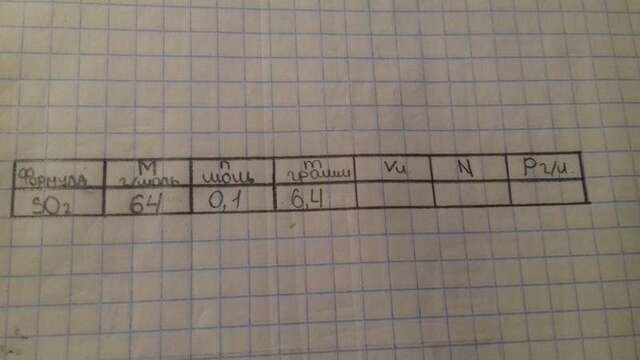 Формула M г/моль n моль m грамм Vл N Pг/л.
SO2 64 0,1 6,4